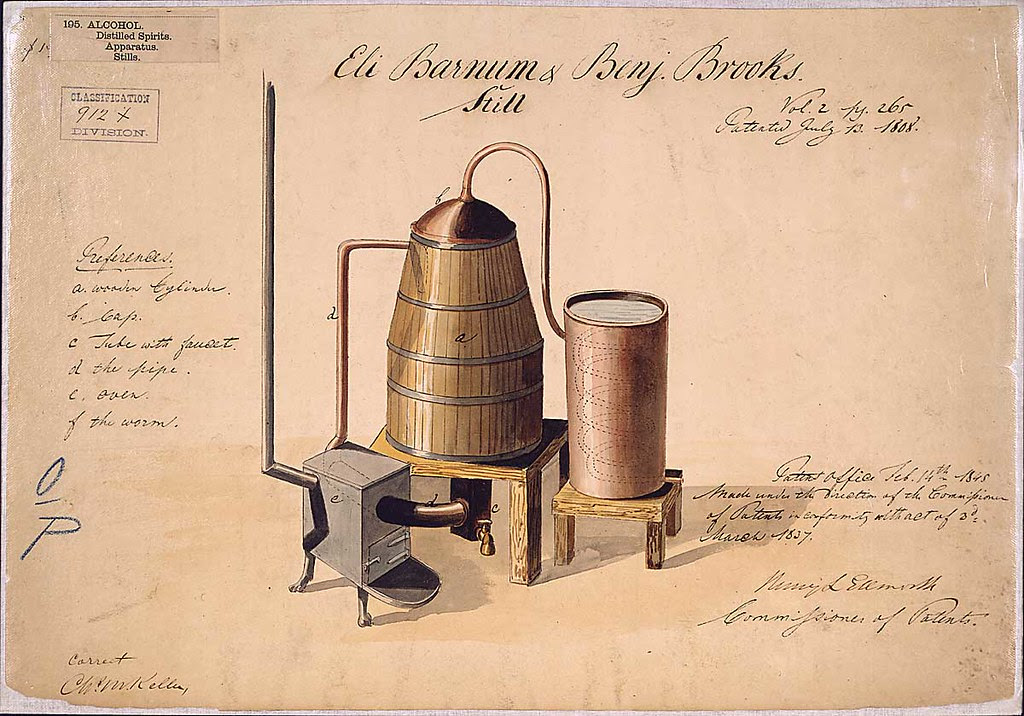 195. ALCOHOL.
Distilled Spirits.
Apparatus.
Stills.
CLASSIFICATION
912 X
DIVISION.
Eli Barnum & Benj. Brooks.
Still
Vol. 2 pg. 265
Patented July 13. 1808.
References.
a. wooden Cylinder.
b. Cap.
c Tube with faucet.
d the pipe.
e. oven.
f the worm.
b
d
a
e
d
c
Patent Office Feb. 14th 1845
Made under the Direction of the Commissioner
of Patents in conformity with act of 3d.
March 1837.
Henry L Ellsworth
Commissioner of Patents.
Correct